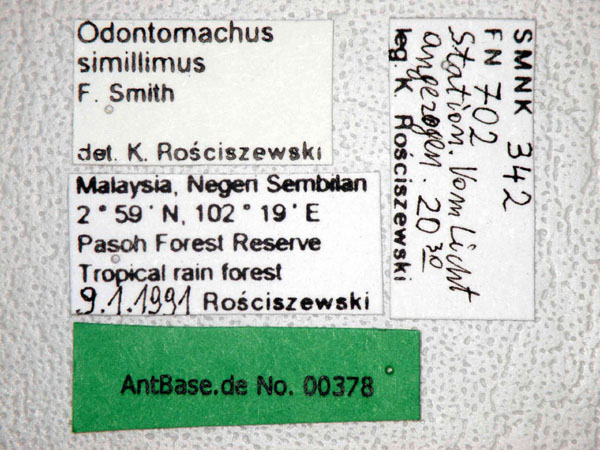 Odontomachus
simillimus
F. Smith
det. K. Rościszewski
Malaysia, Negeri Sembilan
2° 59' N, 102° 19' E
Pasoh Forest Reserve
Tropical rain forest
9.1.1991 Rościszewski
AntBase.de No. 00378
SMNK 342
FN 702
Station. Vom Licht
angezogen. 20 30
leg. K. Rościszewski